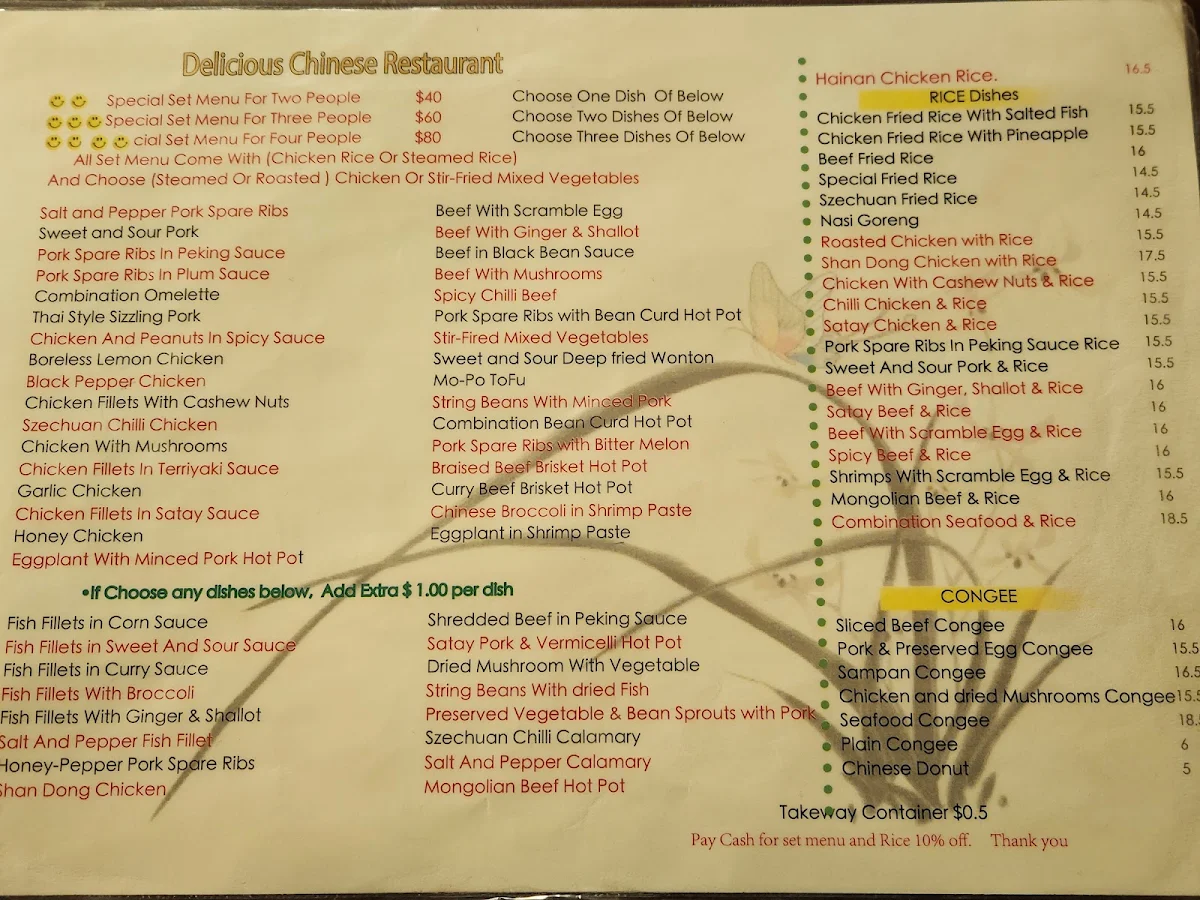 Delicious Chinese Restaurant
Special Set Menu For Two People $40 Choose One Dish Of Below
Special Set Menu For Three People $60 Choose Two Dishes Of Below
cial Set Menu For Four People $80 Choose Three Dishes Of Below
All Set Menu Come With (Chicken Rice Or Steamed Rice)
And Choose (Steamed Or Roasted ) Chicken Or Stir-Fried Mixed Vegetables
Salt and Pepper Pork Spare Ribs
Sweet and Sour Pork
Pork Spare Ribs In Peking Sauce
Pork Spare Ribs In Plum Sauce
Combination Omelette
Thai Style Sizzling Pork
Chicken And Peanuts In Spicy Sauce
Boreless Lemon Chicken
Black Pepper Chicken
Chicken Fillets With Cashew Nuts
Szechuan Chilli Chicken
Chicken With Mushrooms
Chicken Fillets In Terriyaki Sauce
Garlic Chicken
Chicken Fillets In Satay Sauce
Honey Chicken
Eggplant With Minced Pork Hot Pot
Beef With Scramble Egg
Beef With Ginger & Shallot
Beef in Black Bean Sauce
Beef With Mushrooms
Spicy Chilli Beef
Pork Spare Ribs with Bean Curd Hot Pot
Stir-Fired Mixed Vegetables
Sweet and Sour Deep fried Wonton
Mo-Po ToFu
String Beans With Minced Pork
Combination Bean Curd Hot Pot
Pork Spare Ribs with Bitter Melon
Braised Beef Brisket Hot Pot
Curry Beef Brisket Hot Pot
Chinese Broccoli in Shrimp Paste
Eggplant in Shrimp Paste
•If Choose any dishes below, Add Extra $ 1.00 per dish
Fish Fillets in Corn Sauce
Fish Fillets in Sweet And Sour Sauce
Fish Fillets in Curry Sauce
Fish Fillets With Broccoli
Fish Fillets With Ginger & Shallot
Salt And Pepper Fish Fillet
Honey-Pepper Pork Spare Ribs
Shan Dong Chicken
Shredded Beef in Peking Sauce
Satay Pork & Vermicelli Hot Pot
Dried Mushroom With Vegetable
String Beans With dried Fish
Preserved Vegetable & Bean Sprouts with Pork
Szechuan Chilli Calamary
Salt And Pepper Calamary
Mongolian Beef Hot Pot
Hainan Chicken Rice. 16.5
RICE Dishes
Chicken Fried Rice With Salted Fish 15.5
Chicken Fried Rice With Pineapple 15.5
Beef Fried Rice 16
Special Fried Rice 14.5
Szechuan Fried Rice 14.5
Nasi Goreng 14.5
Roasted Chicken with Rice 15.5
Shan Dong Chicken with Rice 17.5
Chicken With Cashew Nuts & Rice 15.5
Chilli Chicken & Rice 15.5
Satay Chicken & Rice 15.5
Pork Spare Ribs In Peking Sauce Rice 15.5
Sweet And Sour Pork & Rice 15.5
Beef With Ginger, Shallot & Rice 16
Satay Beef & Rice 16
Beef With Scramble Egg & Rice 16
Spicy Beef & Rice 16
Shrimps With Scramble Egg & Rice 15.5
Mongolian Beef & Rice 16
Combination Seafood & Rice 18.5
CONGEE
Sliced Beef Congee 16
Pork & Preserved Egg Congee 15.5
Sampan Congee 16.5
Chicken and dried Mushrooms Congee 15.5
Seafood Congee 18.5
Plain Congee 6
Chinese Donut 5
Takeway Container $0.5
Pay Cash for set menu and Rice 10% off. Thank you